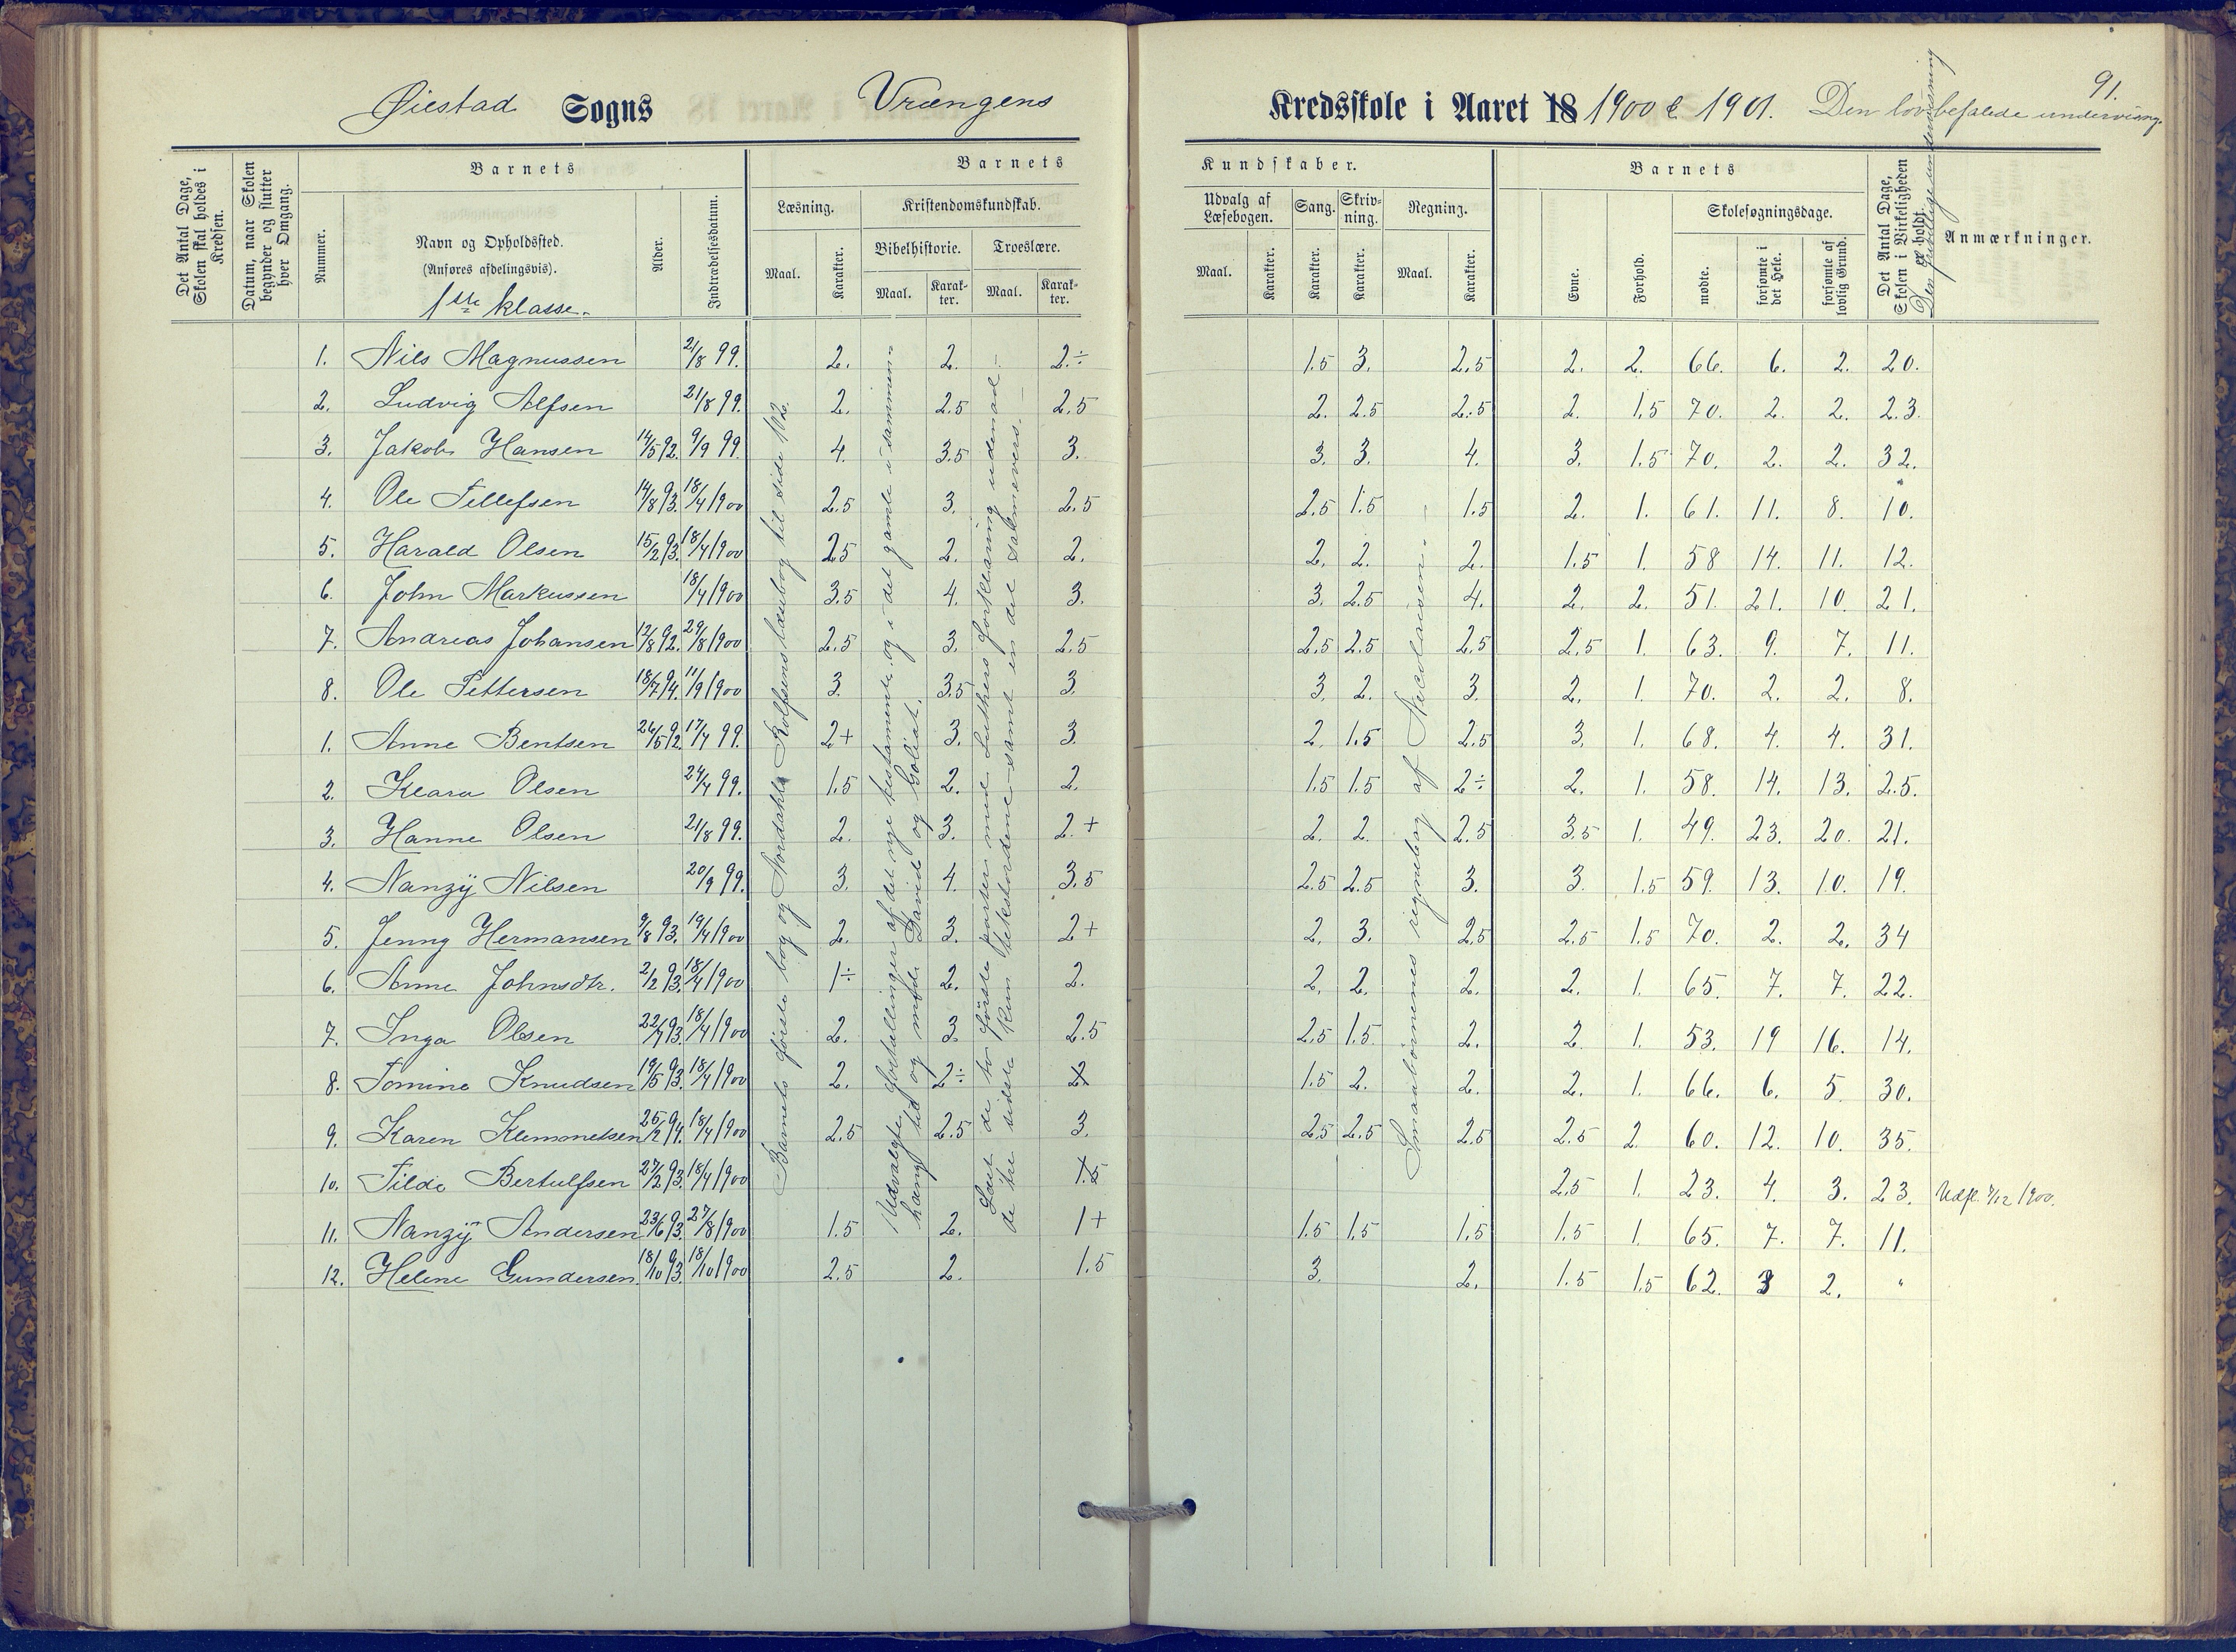 Øiestad Sogns Vrængens Kredsskole i Aaret 18 1900 & 1901. Den lovbefalede undervisng. 91.
Det Antal Dage, Skolen skal holdes i Kredsen.
Datum, naar Skolen begynder og slutter hver Omgang.
Barnets
Nummer.
Navn og Opholdssted.
(Anføres afdelingsvis).
1ste klasse.
Alder.
Indtrædelsesdatum.
Barnets Kundskaber.
Læsning.
Maal. Karakter.
Kristendomskundskab.
Bibelhistorie. Troeslære.
Maal. Karakter. Maal. Karakter.
Udvalg af Læsebogen.
Maal. Karakter.
Sang. Karakter.
Skrivning. Karakter.
Regning.
Maal. Karakter.
Barnets
Evne. Forhold.
Skolesøgningsdage.
mødte. forsømte i det Hele. forsømte af lovlig Grund.
Det Antal Dage, Skolen i Virkeligheden er holdt.
Den frivillige undervisning
Anmærkninger.
1. Nils Magnussen 21/8 99. 2. 2. 2.÷ 1.5 3. 2.5 2. 2. 66. 6. 2. 20.
2. Ludvig Alfsen 21/8 99. 2. 2.5 2.5 2. 2.5 2.5 2. 1.5 70. 2. 2. 23.
3. Jakob Hansen 14/5 92. 9/9 99. 4. 3.5 3. 3. 3. 4. 3. 1.5 70. 2. 2. 32.
4. Ole Tellefsen 14/8 93. 18/4 1900 2.5 3. 2.5 2.5 1.5 1.5 2. 1. 61. 11. 8. 10.
5. Harald Olsen 15/2 93. 18/4 1900 2.5 2. 2. 2. 2. 2. 1.5 1. 58 14. 11. 12.
6. John Markussen 18/4 1900 3.5 4. 3. 3. 2.5 4. 2. 2. 51. 21. 10. 21.
7. Andreas Johansen 12/8 92. 29/8 1900 2.5 3. 2.5 2.5 2.5 2.5 2.5 1. 63. 9. 7. 11.
8. Ole Pettersen 18/7 94. 11/9 1900 3. 3.5 3. 3. 2. 3. 2. 1. 70. 2. 2. 8.
1. Anne Bentsen 26/5 92. 17/4 99. 2+ 3. 3. 2. 1.5 2.5 3. 1. 68. 4. 4. 31.
2. Klara Olsen 24/4 99. 1.5 2. 2. 1.5 1.5 2÷ 2. 1. 58. 14. 13. 25.
3. Hanne Olsen 21/8 99. 2. 3. 2.+ 2. 2. 2.5 3.5 1. 49. 23. 20. 21.
4. Nanzÿ Nilsen 20/9 99. 3. 4. 3.5 2.5 2.5 3. 3. 1.5 59. 13. 10. 19.
5. Jenny Hermansen 9/8 93. 19/4 1900 2. 3. 2+ 2. 3. 2.5 2.5 1.5 70. 2. 2. 34
6. Anne Johnsdtr. 2/2 93. 18/4 1900 1÷ 2. 2. 2. 2. 2. 2. 1. 65. 7. 7. 22.
7. Inga Olsen 22/7 93. 18/4 1900 2. 3. 2.5 2.5 1.5. 2. 2 1. 53. 19 16. 14.
8. Tomine Knudsen 19/5 93. 18/4 1900 2. 2÷ 2. 1.5 2. 2. 2. 1. 66. 6. 5 30.
9. Karen Klemmetsen 25/2 94. 18/4 1900 2.5 2.5 3. 2.5 2.5 2.5 2.5 2 60. 12. 10. 35.
10. Tilde Bertulfsen 27/2 93. 18/4 1900 1.5 2.5 1. 23. 4. 3. 23. Udfl. 7/12 1900.
11. Nanzÿ Andersen 23/6 93. 27/8 1900 1.5 2. 1+ 1.5 1.5 1.5 1.5 1. 65. 7. 7. 11.
12. Helene Gundersen. 18/10 93. 18/10 1900 2.5 2. 1.5 3. 2. 1.5 1.5 62. 3 2. "
Barnets første bog og Nordahl Rolfsens læsebog til side 102.
Udvalgte fortællinger af det nye testamente og i det gamle i sammenhæng til og med David og Goliat.
Læst de to første parter med Luthers forklaring udenad; de tre sidste kun tekstordene samt en del salmevers.
Smaabørnenes regnebog af Nicolaisen.